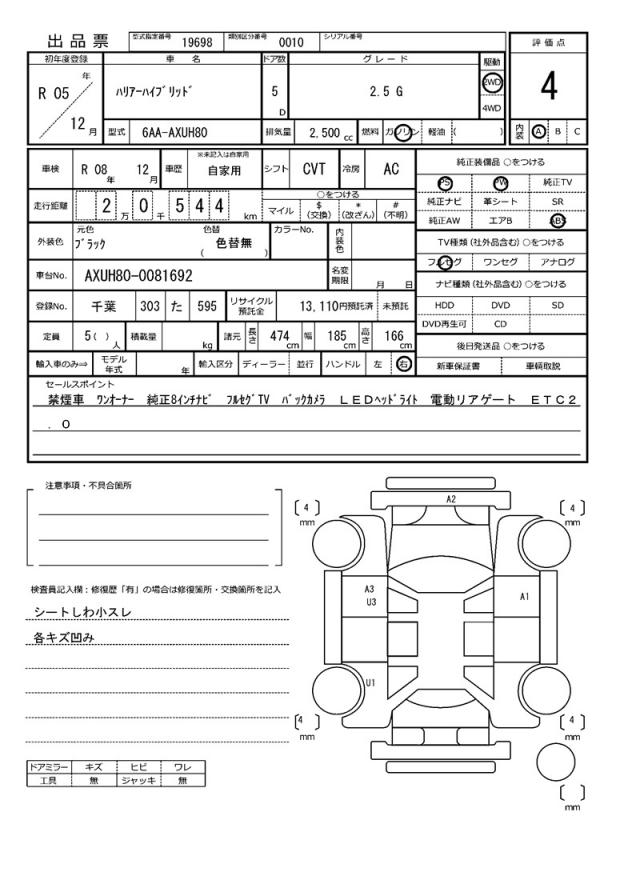 出品票 型式指定番号 19698 類別区分番号 0010 シリアル番号
評価点
4
内装 A B C
初年度登録 車名 ドア数 グレード 駆動
R 05 年 12 月 ﾊﾘｱｰﾊｲﾌﾞﾘｯﾄﾞ 5 D 2.5 G 2WD 4WD
型式 6AA-AXUH80 排気量 2,500 cc 燃料 ガソリン 軽油 ( )
車検 R 08 年 12 月 車歴 ※未記入は自家用 自家用 シフト CVT 冷房 AC
走行距離 2 万 0 千 5 4 4 km
○をつける
マイル $ (交換) * (改ざん) # (不明)
外装色 元色 ﾌﾞﾗｯｸ 色替 ( 色替無 ) カラーNo. 内装色
車台No. AXUH80-0081692 名変期限 月 日
登録No. 千葉 303 た 595 リサイクル預託金 13,110円預託済 未預託
定員 5 ( ) 人 積載量 kg 諸元 長さ 474 cm 幅 185 cm 高さ 166 cm
輸入車のみ⇒ モデル年式 年 輸入区分 ディーラー 並行 ハンドル 左 右
純正装備品 ○をつける
PS PW 純正TV
純正ナビ 革シート SR
純正AW エアB ABS
TV種類 (社外品含む) ○をつける
フルセグ ワンセグ アナログ
ナビ種類 (社外品含む) ○をつける
HDD DVD SD
DVD再生可 CD
後日発送品 ○をつける
新車保証書 車輌取説
セールスポイント
禁煙車 ﾜﾝｵｰﾅｰ 純正8インチﾅﾋﾞ ﾌﾙｾｸﾞTV ﾊﾞｯｸｶﾒﾗ ＬＥＤﾍｯﾄﾞﾗｲﾄ 電動リアゲート ＥＴＣ２
．０
注意事項・不具合箇所
検査員記入欄：修復歴「有」の場合は修復箇所・交換箇所を記入
シートしわ小スレ
各キズ凹み
ドアミラー キズ ヒビ ワレ
工具 無 ジャッキ 無
A2
4 mm
4 mm
A3
U3
A1
U1
4 mm
4 mm
mm